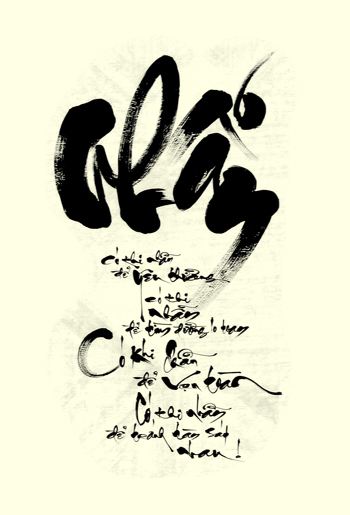 Nhẫn
có khi nhẫn
để yêu thương
có khi
nhẫn
để tìm đường lo toan
Có khi nhẫn
để vẹn toàn
Có khi nhẫn
để tránh tàn sát
nhau!